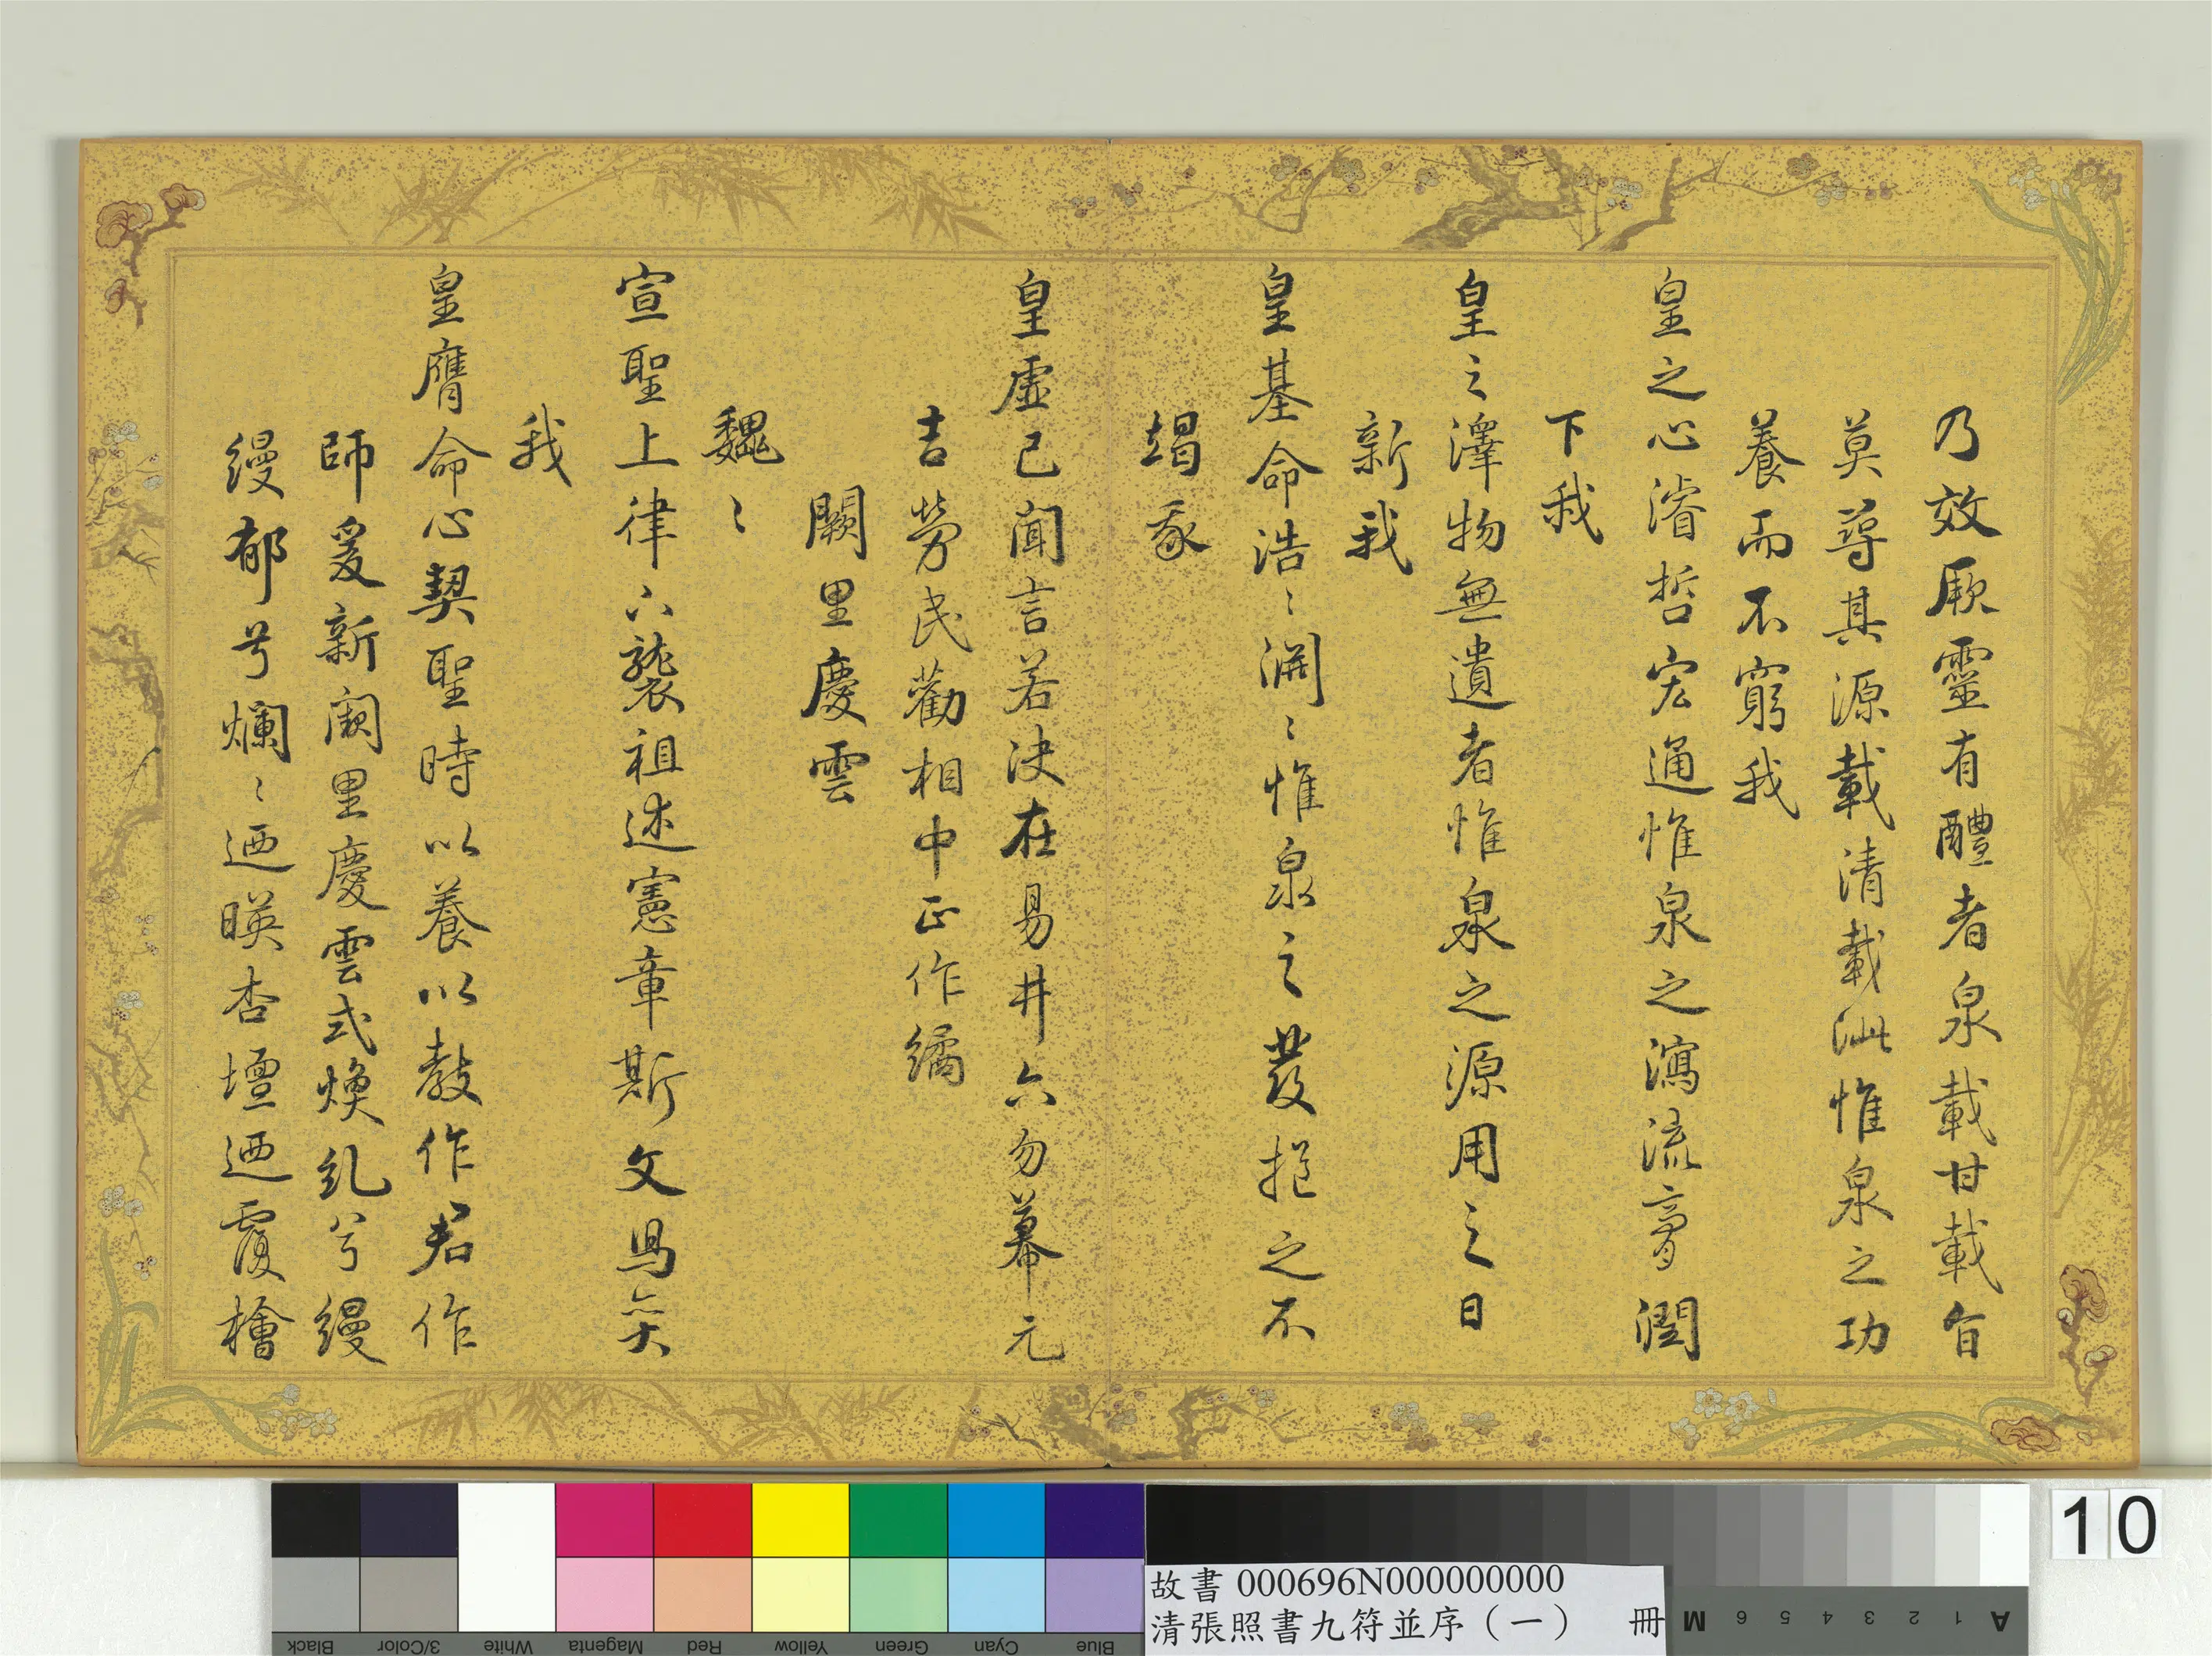 乃效厥靈有醴者泉載甘載旨
莫尋其源載清載泚惟泉之功
養而不窮我
皇之心濬哲宏通惟泉之瀉流膏潤
下我
皇之澤物無遺者惟泉之源用之日
新我
皇基命浩〻淵〻惟泉之發挹之不
竭豕
皇虛已聞言若決在易井六勿幕元
吉勞民勸相中正作繘
闕里慶雲
魏〻
宣聖上律下襲祖述憲章斯文焉奕
我
皇膺命心契聖時以養以教作君作
師爰新闕里慶雲式煥糺兮縵
縵郁兮爛〻迺暎杏壇迺覆檜
10
故書 000696N000000000
清張照書九符並序（一） 冊
Black
3/Color
White
Magenta
Red
Yellow
Green
Cyan
Blue
M 6 5 4 3 2 1 A